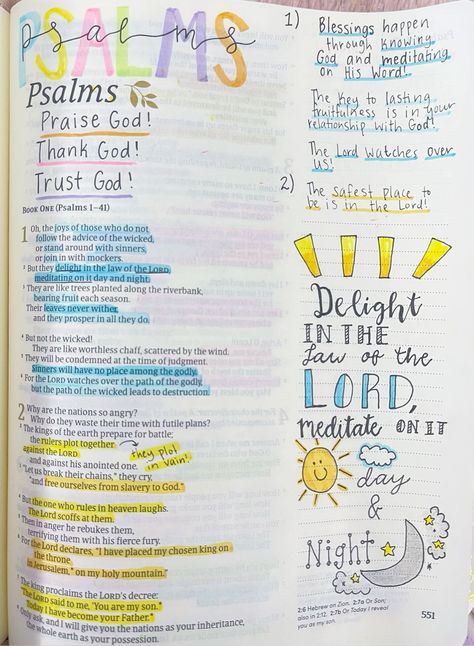 PSALMS
psalms
Psalms
Praise God!
Thank God!
Trust God!
BOOK ONE (Psalms 1–41)
1 Oh, the joys of those who do not
follow the advice of the wicked,
or stand around with sinners,
or join in with mockers.
2 But they delight in the law of the LORD,
meditating on it day and night.
3 They are like trees planted along the riverbank,
bearing fruit each season.
Their leaves never wither,
and they prosper in all they do.
4 But not the wicked!
They are like worthless chaff, scattered by the wind.
5 They will be condemned at the time of judgment.
Sinners will have no place among the godly.
6 For the LORD watches over the path of the godly,
but the path of the wicked leads to destruction.
2 Why are the nations so angry?
Why do they waste their time with futile plans?
2 The kings of the earth prepare for battle;
the rulers plot together
against the LORD
and against his anointed one.
they plot
in vain!
3 "Let us break their chains," they cry,
"and free ourselves from slavery to God."
4 But the one who rules in heaven laughs.
The Lord scoffs at them.
5 Then in anger he rebukes them,
terrifying them with his fierce fury.
6 For the Lord declares, "I have placed my chosen king on
the throne
in Jerusalem, on my holy mountain."
7 The king proclaims the LORD's decree:
"The LORD said to me, 'You are my son.
Today I have become your Father.
8 Only ask, and I will give you the nations as your inheritance,
the whole earth as your possession.
1) Blessings happen
through knowing
God and meditating
on His Word!
The key to lasting
fruitfulness is in your
relationship with God!
The Lord watches over
us!
2) The safest place to
be is in the Lord!
Delight
IN THE
law of the
LORD,
meditate ON IT
day
&
Night
2:6 Hebrew on Zion. 2:7a Or Son;
also in 2:12. 2:7b Or Today I reveal
you as my son.
551